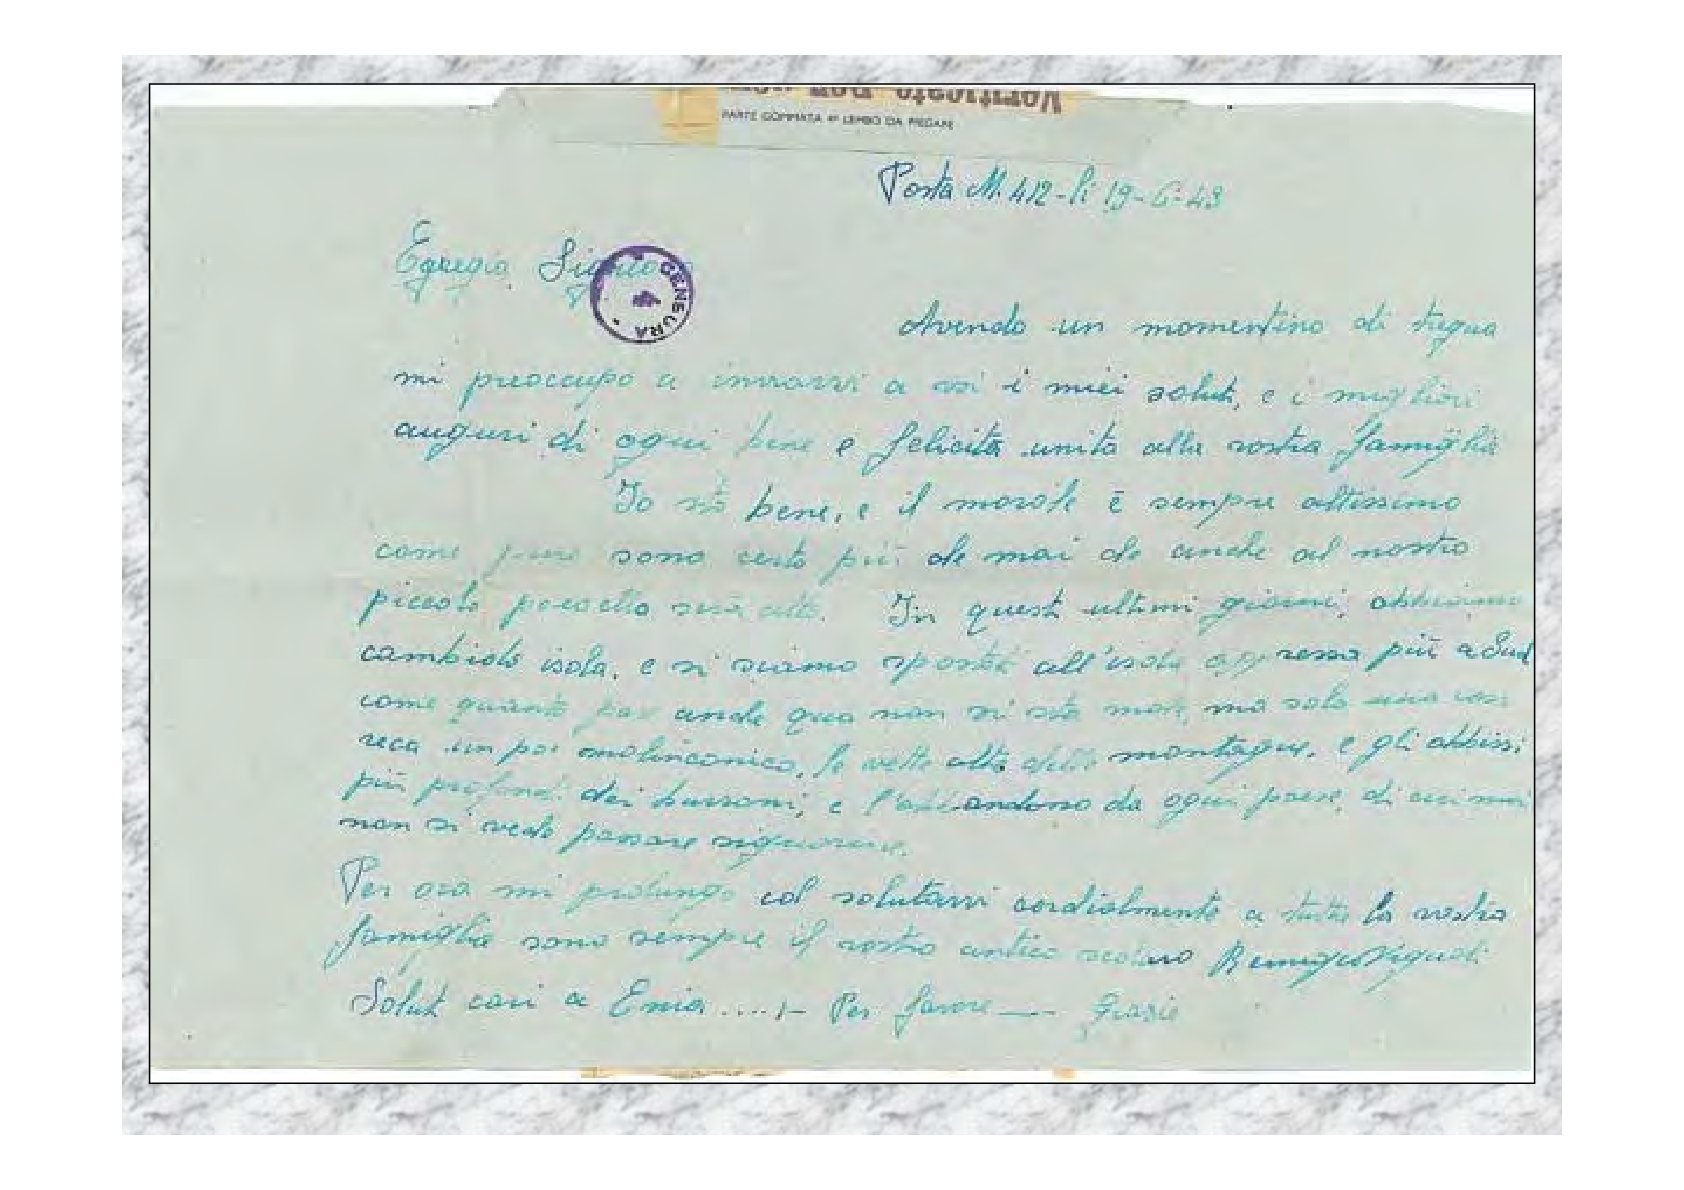 Verificato per
PARTE GOMMATA 4º LEMBO DA PIEGARE
Posta M. 412 - li 19-6-43
Egregio Signore
CENSURA
Avendo un momentino di tregua
mi preoccupo a inviarvi a voi i miei saluti, e i migliori
auguri di ogni bene e felicità unita alla vostra famiglia
Io stò bene, e il morale è sempre altissimo
come pure sono certo più che mai che anche al nostro
piccolo sarà alto. In questi ultimi giorni, abbiamo
cambiato isola, e si siamo spostati all'isola appresso più a Sud
come quanto par anche qua non si stà male, ma solo una cosa
reca un poi malinconico, le vette alte delle montagne, e gli abbissi
più profondi dei burroni, e l'abbandono da ogni paese, di cui mai
non si vede passare signorine.
Per ora mi prolungo col salutarvi cordialmente a tutta la vostra
famiglia sono sempre il vostro antico scolaro Remigio
Saluti cari a Enia ..... Per favore — Grazie